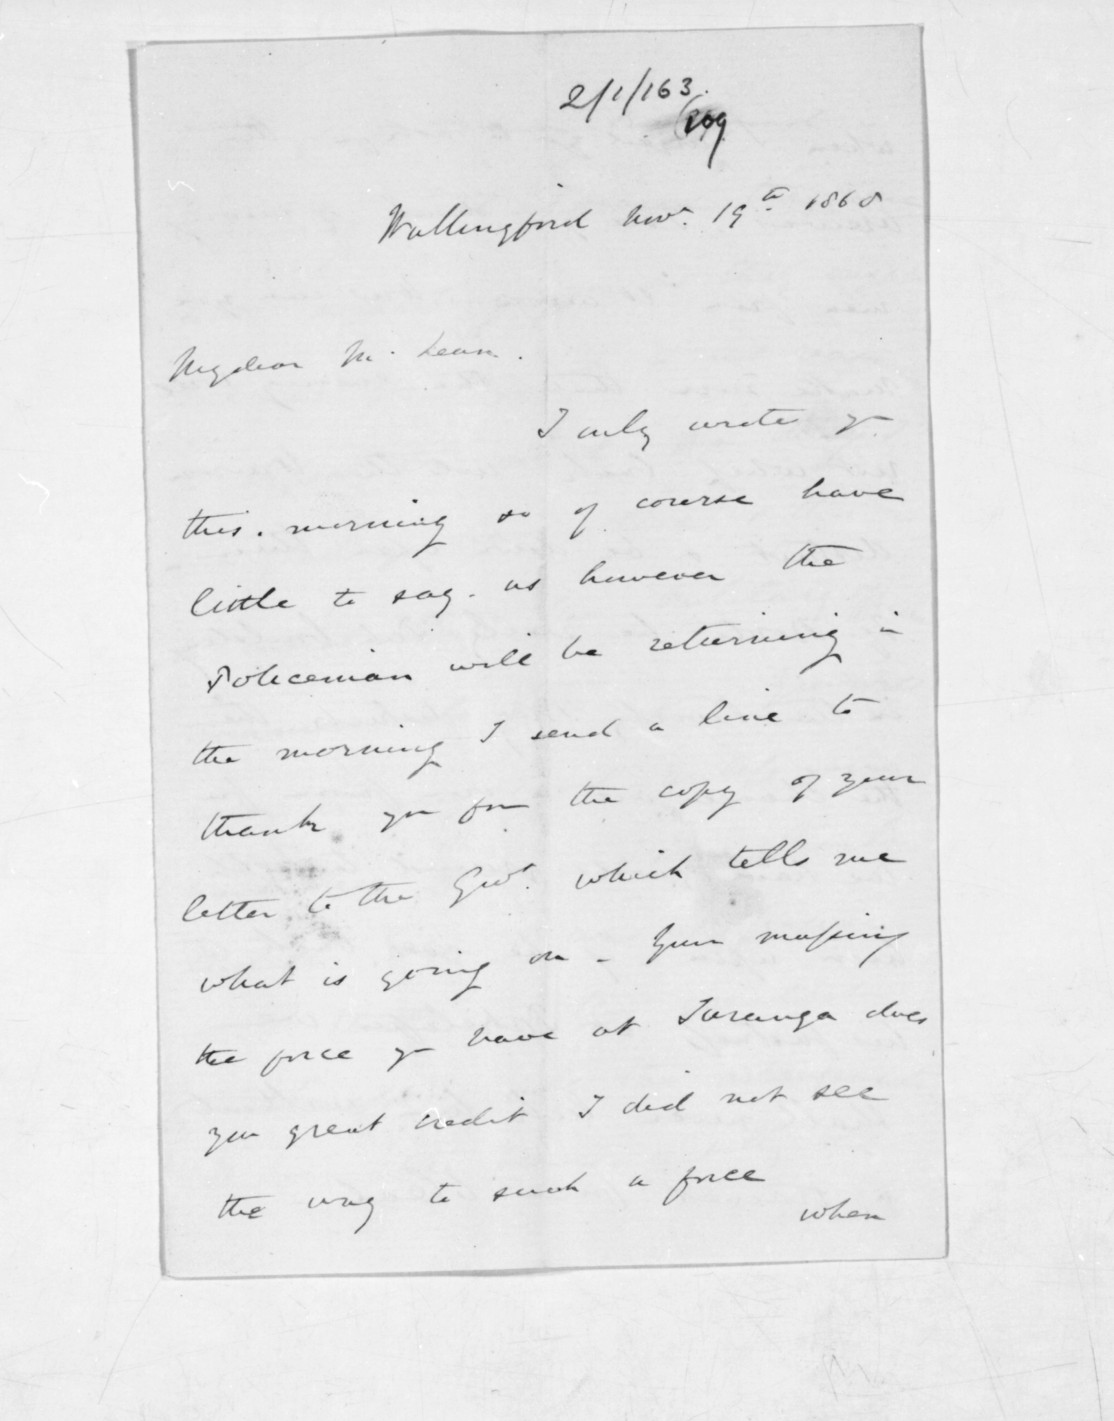 2/1/163.
209
Wallingford Novr. 19th 1868
My dear McLean.
I only wrote yr
this. morning so of course have
little to say. as however the
Policeman will be returning in
the morning I send a line to
thank yr for the copy of your
letter to the Govt. which tells me
what is going on - Your massing
the force yr have at Turanga does
you great credit I did not see
the way to such a force
when